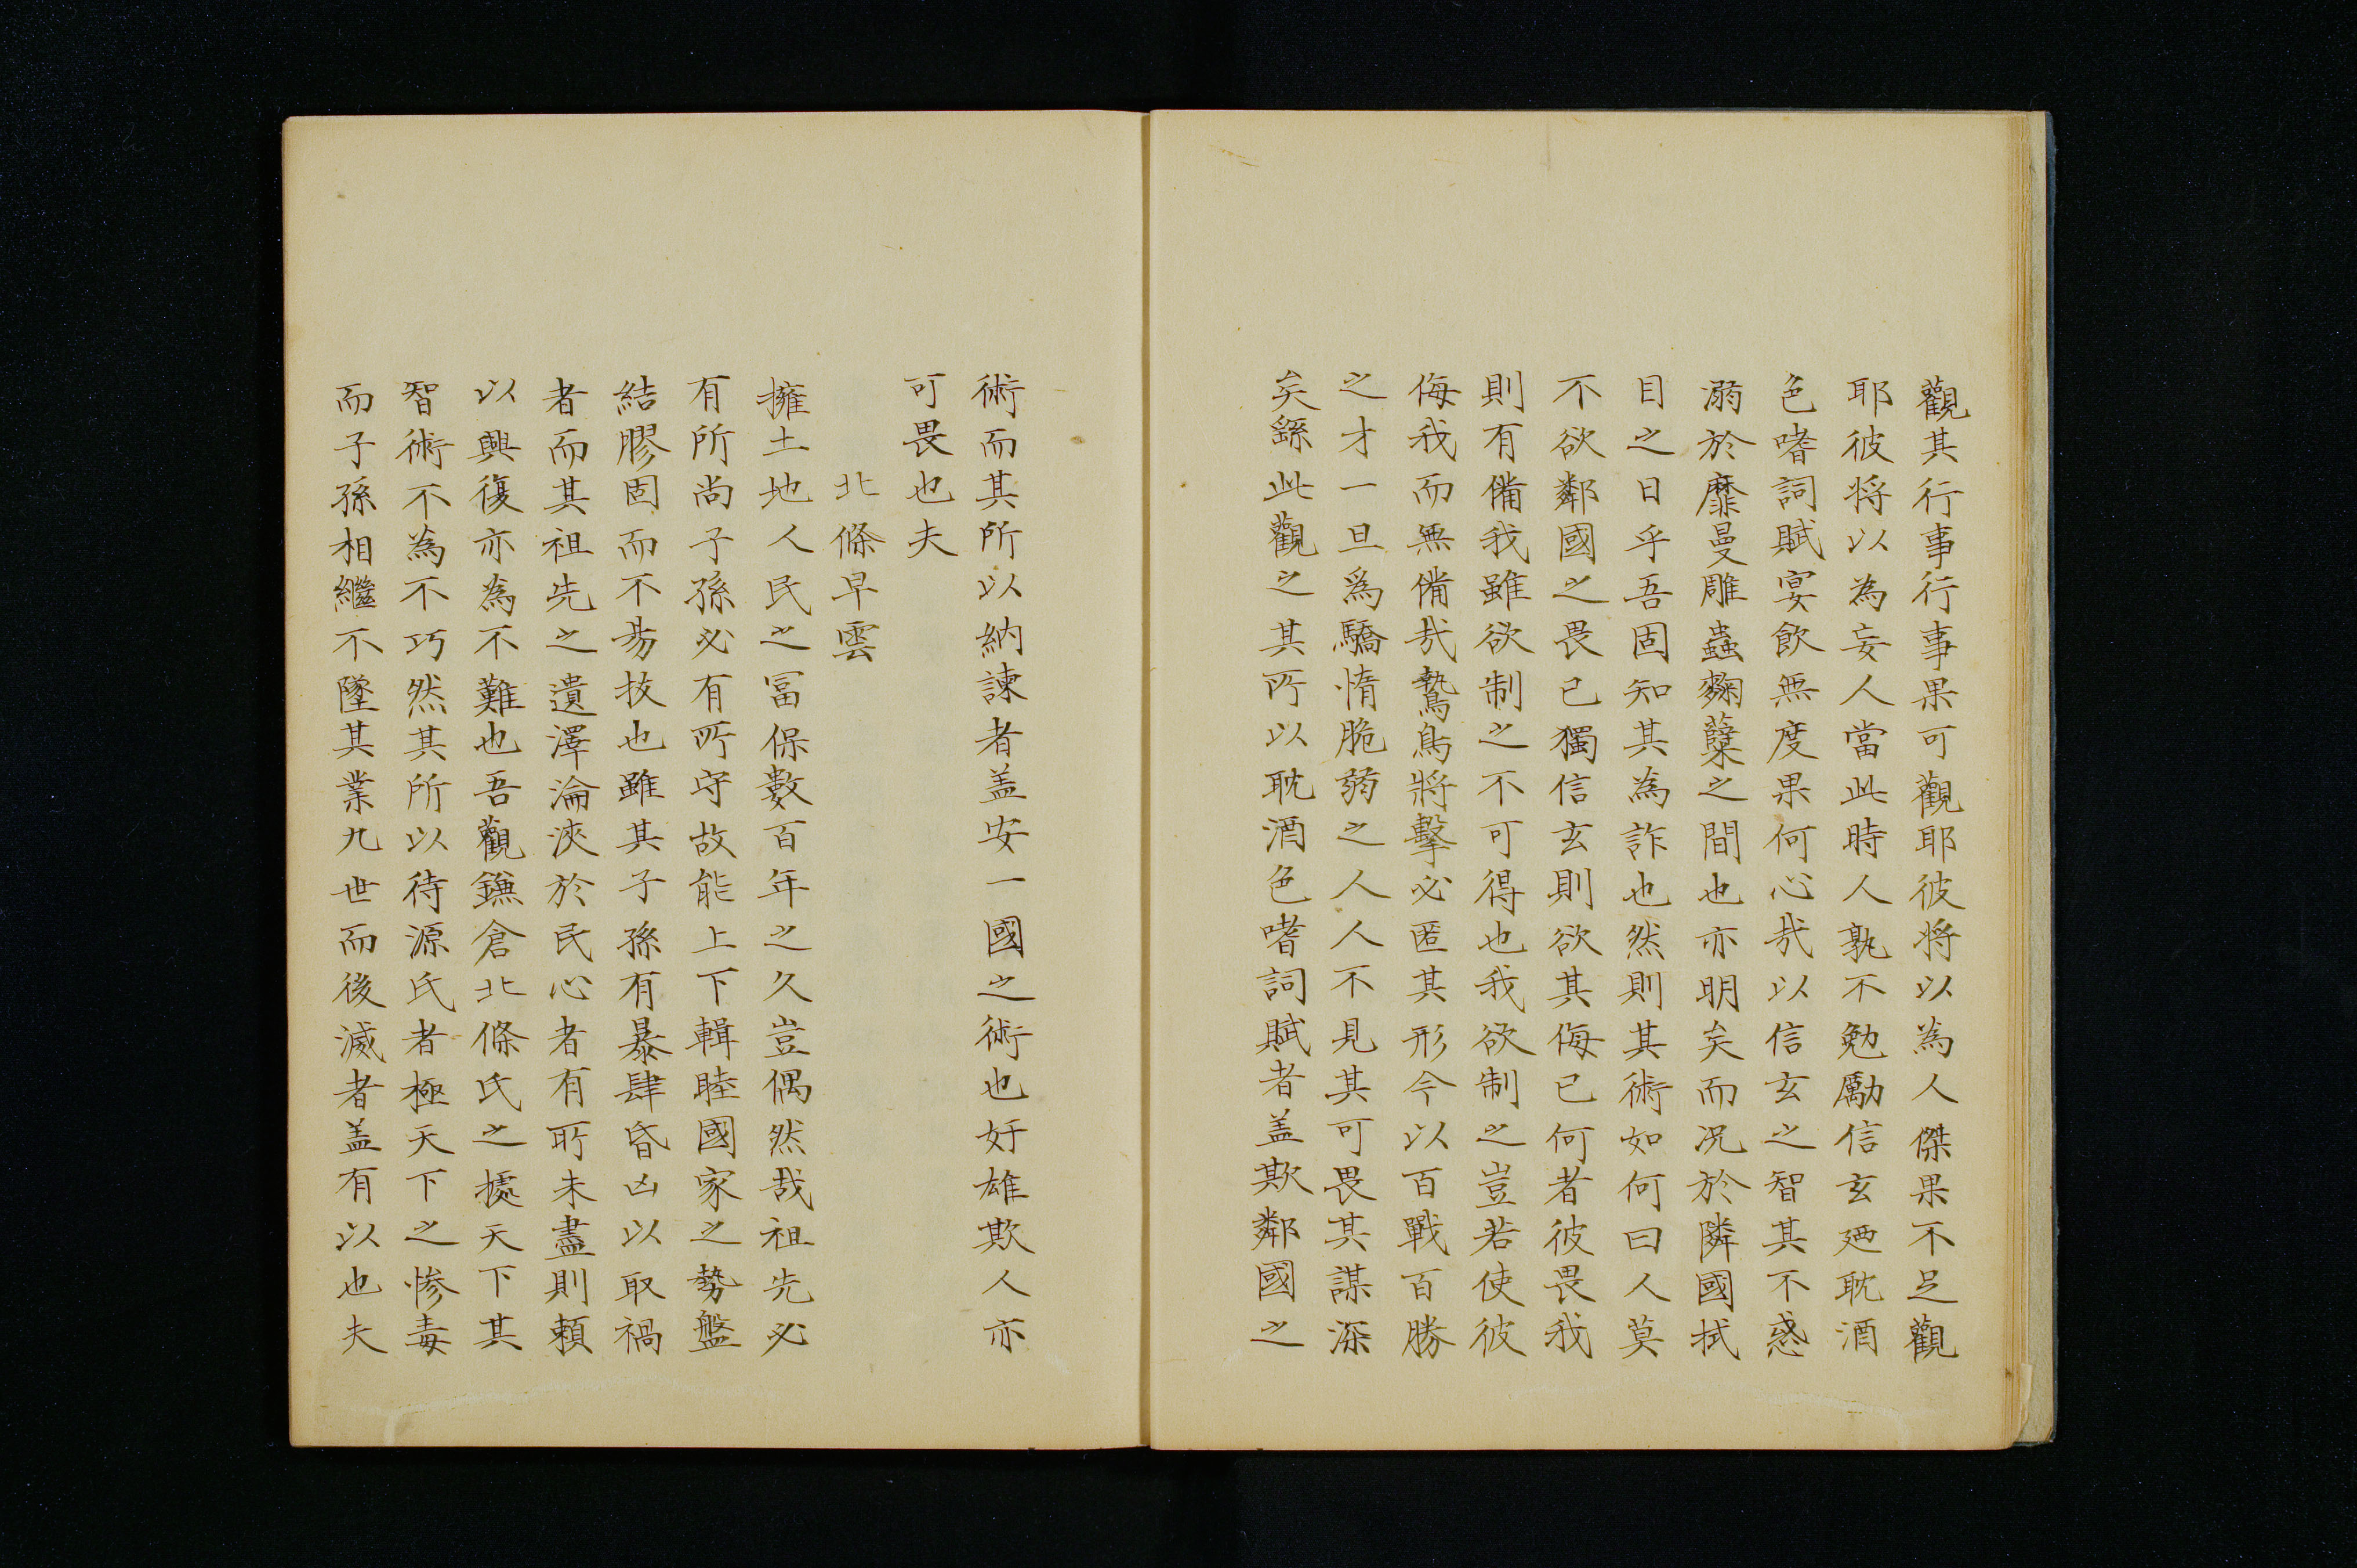 觀其行事行事果可觀耶彼将以為人傑果不足觀
耶彼将以為妄人當此時人孰不勉勵信玄廼耽酒
色嗜詞賦宴飲無度果何心㢤以信玄之智其不惑
溺於靡曼雕蟲麹蘖之間也亦明矣而况於隣國拭
目之日乎吾固知其為詐也然則其術如何曰人莫
不欲鄰國之畏已獨信玄則欲其侮已何者彼畏我
則有備我雖欲制之不可得也我欲制之豈若使彼
侮我而無備㢤鷙鳥將擊必匿其形今以百戰百勝
之才一旦爲驕惰脆弱之人人不見其可畏其謀深
矣繇此觀之其所以耽酒色嗜詞賦者盖欺鄰國之
術而其所以納諫者盖安一國之術也奸雄欺人亦
可畏也夫
北條早雲
擁土地人民之冨保數百年之久豈偶然哉祖先必
有所尚子孫必有所守故能上下輯睦國家之勢盤
結膠固而不易拔也雖其子孫有暴肆昏凶以取禍
者而其祖先之遺澤淪浹於民心者有所未盡則頼
以興復亦為不難也吾觀鎌倉北條氏之據天下其
智術不為不巧然其所以待源氏者極天下之惨毒
而子孫相繼不墜其業九世而後滅者盖有以也夫